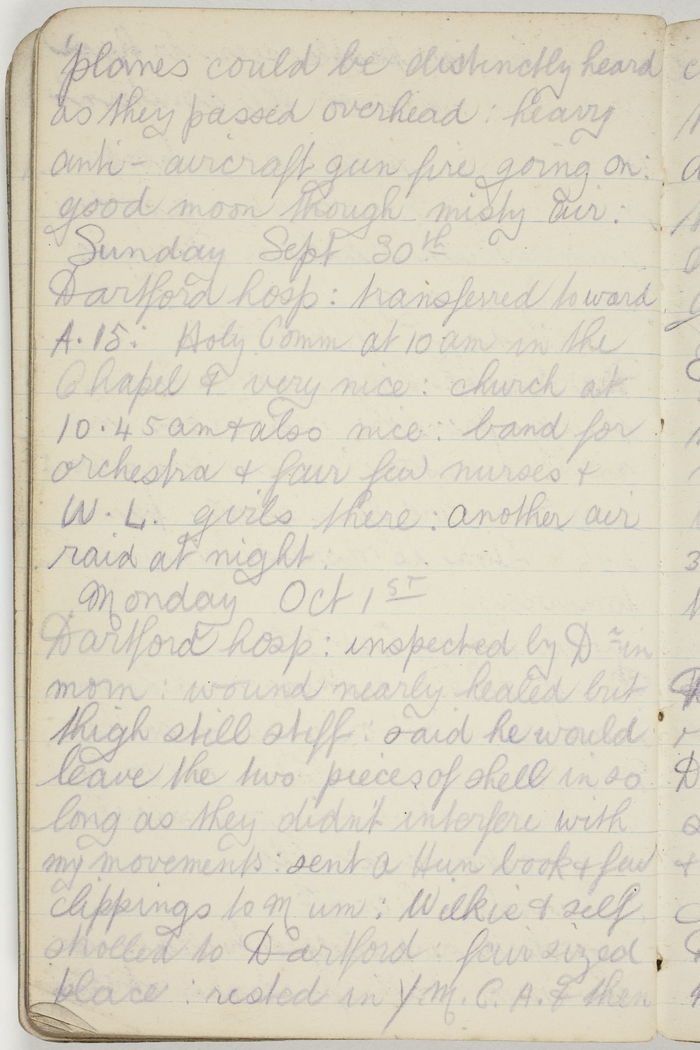 planes could be distinctly heard
as they passed overhead : heavy
anti-aircraft gun fire going on :
good moon though misty air :
Sunday Sept 30th
Dartford hosp : transferred to ward
A.15 : Holy Comm at 10 am in the
Chapel & very nice : church at
10.45 am & also nice : band for
orchestra & fair few nurses &
W.L. girls there : another air
raid at night.
Monday Oct 1st
Dartford hosp : inspected by Dr in
morn : wound nearly healed but
thigh still stiff : said he would
leave the two pieces of shell in so
long as they didn't interfere with
my movements : sent a Hun book & few
clippings to Mum : Wilkie & self
strolled to Dartford : fair sized
place : rested in Y.M.C.A. & then